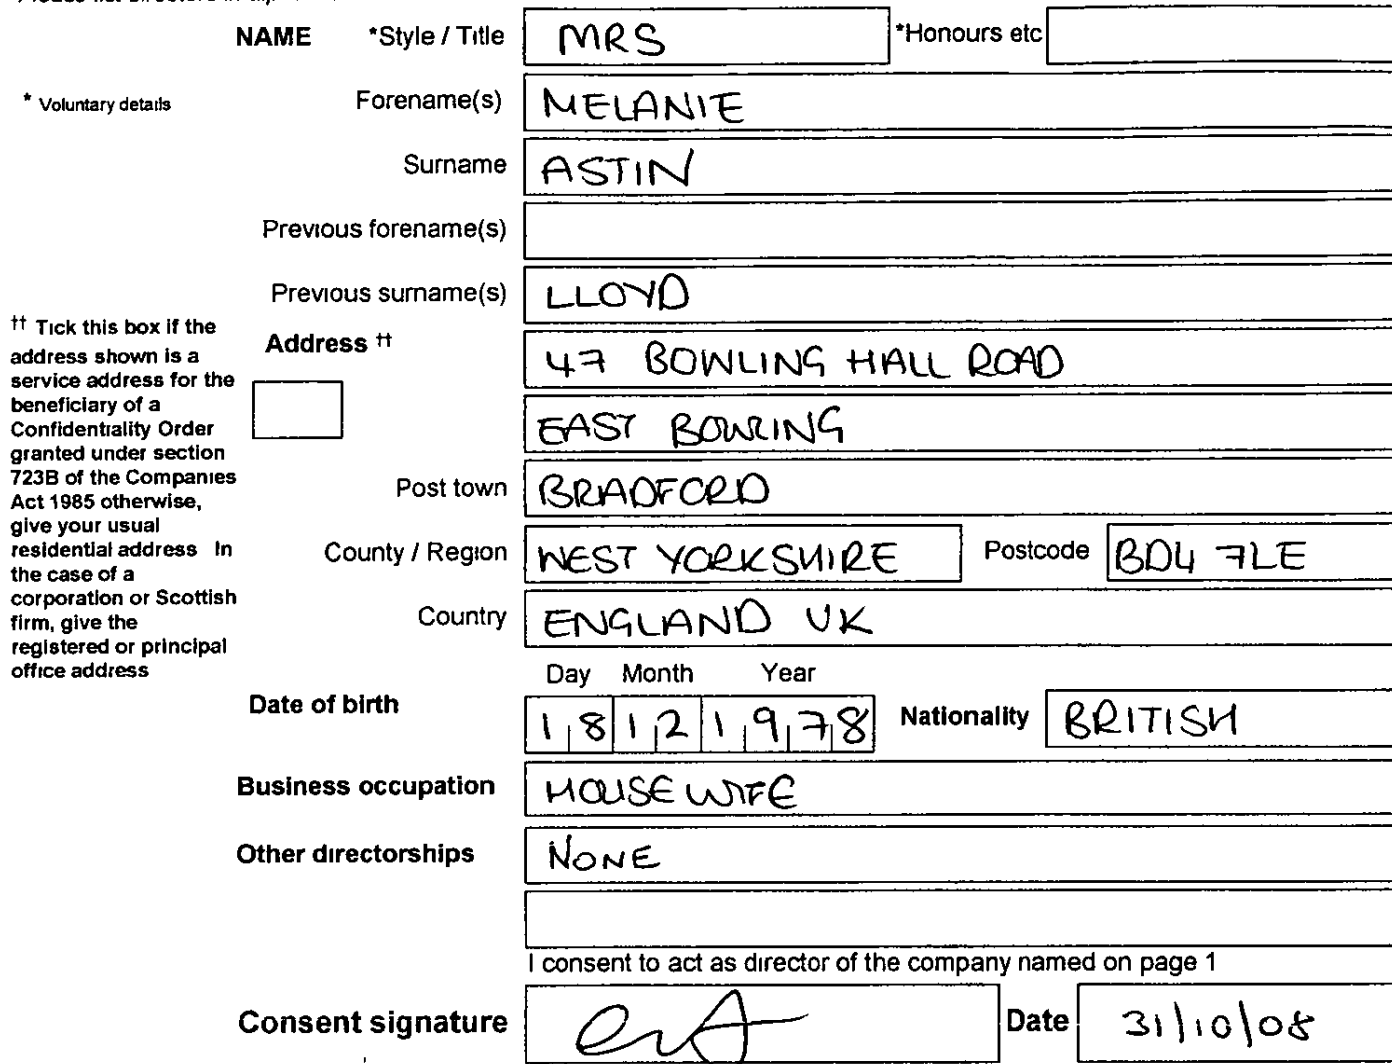 NAME *Style / Title MRS *Honours etc
* Voluntary details Forename(s) MELANIE
Surname ASTIN
Previous forename(s)
Previous surname(s) LLOYD
†† Tick this box if the
address shown is a
service address for the
beneficiary of a
Confidentiality Order
granted under section
723B of the Companies
Act 1985 otherwise,
give your usual
residential address In
the case of a
corporation or Scottish
firm, give the
registered or principal
office address
Address †† 47 BOWLING HALL ROAD
EAST BOWLING
Post town BRADFORD
County / Region WEST YORKSHIRE Postcode BD4 7LE
Country ENGLAND UK
Day Month Year
Date of birth 18 12 1978 Nationality BRITISH
Business occupation HOUSEWIFE
Other directorships NONE
I consent to act as director of the company named on page 1
Consent signature Date 31/10/08